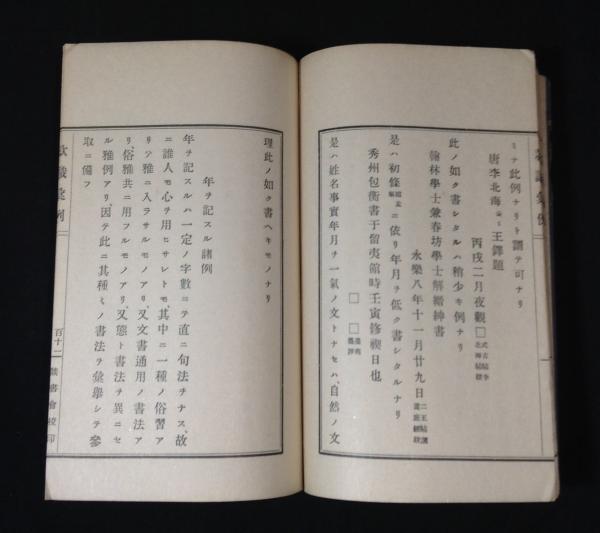 ミテ此例ナリト謂テ可ナリ
唐李北海 王鐸題
丙戌二月夜觀□
此ノ如ク書シタルハ稍少キ例ナリ
翰林學士兼春坊學士解縉紳書
永樂八年十一月廿九日
是ハ初條ニ依リ年月ヲ低ク書シタルナリ
秀州包衡書于留夷館時壬寅修禊日也
□□
是ハ姓名事實年月ヲ一氣ノ文トナセハ、自然ノ文
理此ノ如ク書ヘキモノナリ
年ヲ記スル諸例
年ヲ記スルハ一定ノ字數ニテ直ニ句法ヲナス、故
ニ誰人モ心ヲ用ヒサレトモ、其中ニ一種ノ俗習ア
リテ雅ニ入ラサルモノアリ、又文書通用ノ書法ア
リ、俗雅共ニ用フルモノアリ、又態ト書法ヲ異ニセ
ル雅例アリ、因テ此ニ其種々ノ書法ヲ彙擧シテ參
取ニ備フ
款識彙例
百十二